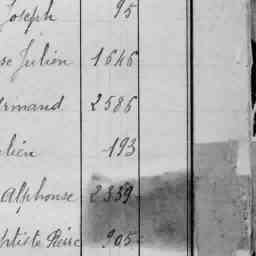 Joseph 95
se Julien 1646
rmand 2586
lien 193
Alphonse 2339
ptiste Pierre 905